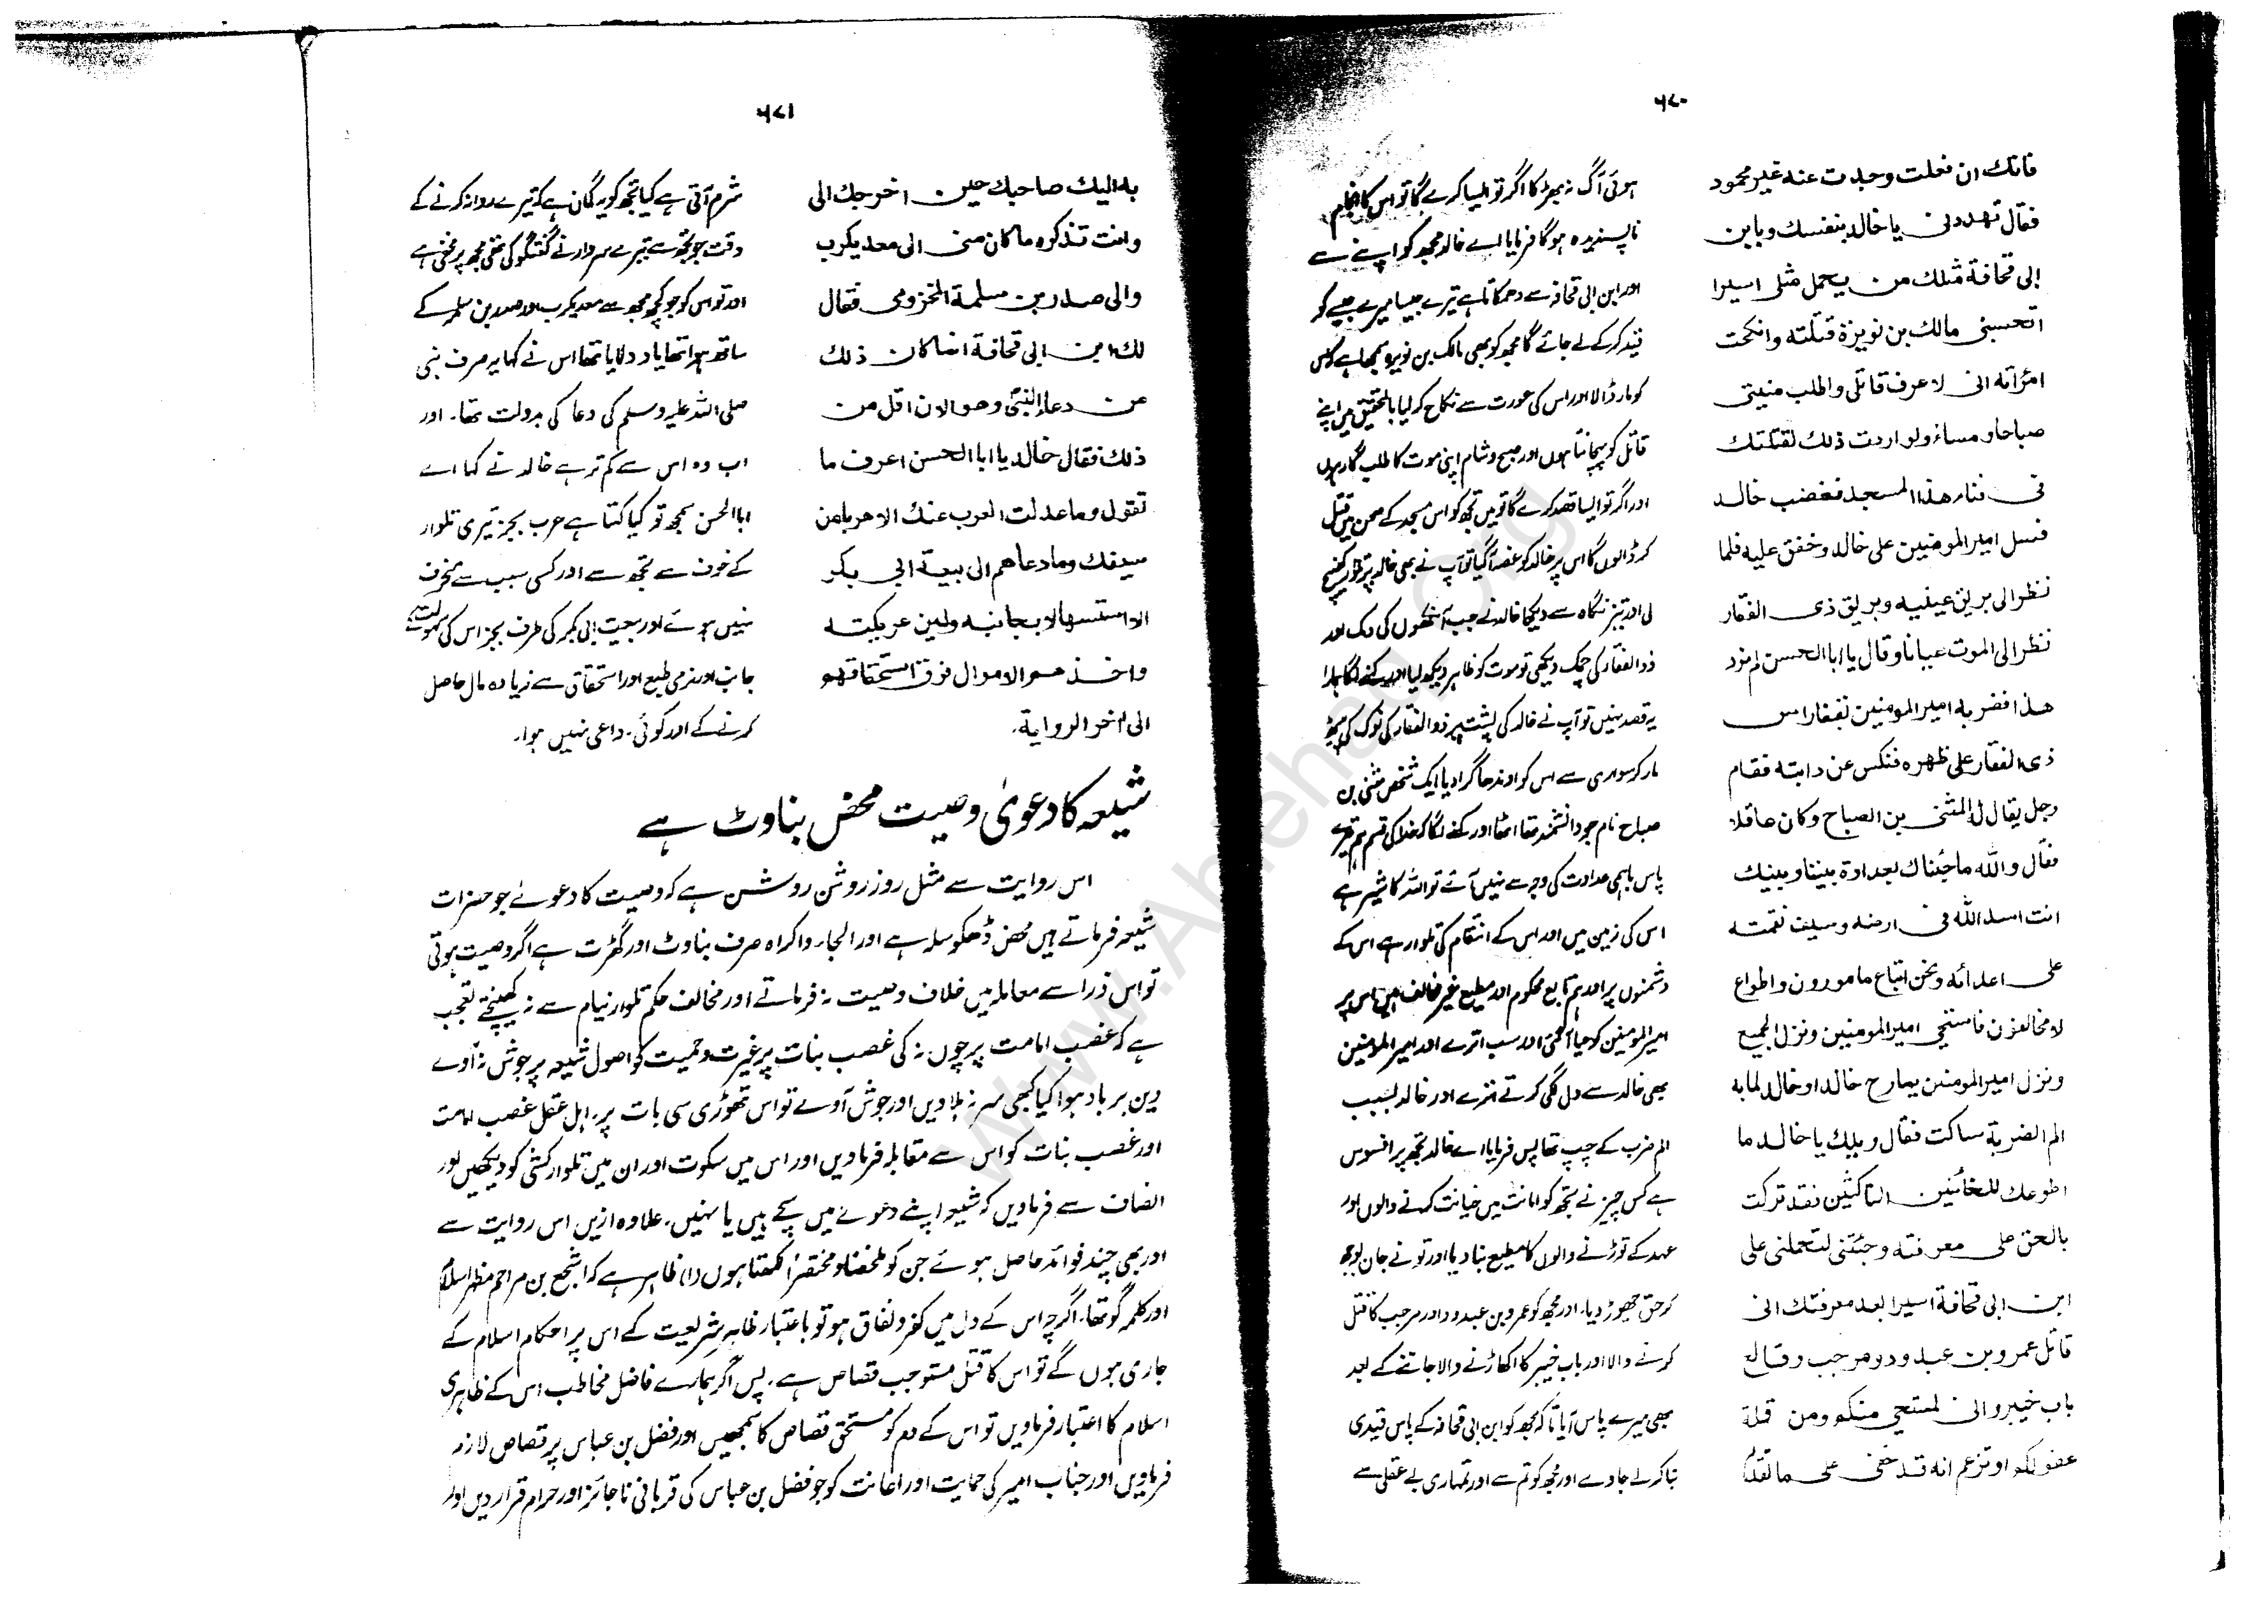 ۶۷۰
فانك ان فعلت وجدت عنه غير محمود
فقال تهددنى يا خالد بنفسك وبابن
ابى قحافة مثلك من يحمل مثلى اسيرا
اتحسبنى مالك بن نويرة قتلته وانكحت
امرأته انى لاعرف قاتلى واطلب منيتى
صباحا ومساءً ولو اردت ذلك لقتلتك
فى فناء هذا المسجد فغضب خالد
فسل امير المومنين على خالد وخفق عليه فلما
نظر الى بريق عينيه وبريق ذى الفقار
نظر الى الموت عيانا وقال يا ابا الحسن لم نرد
هذا فضربه امير المومنين بفقار راس
ذى الفقار على ظهره فنكس عن دابته فقام
رجل يقال له المثنى بن الصباح وكان عاقلا
فقال والله ما جئناك بعداوة بيننا وبينك
انت اسد الله فى ارضه وسيف نقمته
على اعدائه ونحن اتباع مامورون واطواع
لا مخالفون فاستحى امير المومنين ونزل الجميع
ونزل امير المومنين يمازح خالدا وخالد لما به
الم الضربة ساكت فقال ويلك يا خالد ما
اطوعك للخائنين الناكثين فقد تركت
بالحق على معرفته وجئتنى لتحملنى على
ابن ابى قحافة اسيرا بعد معرفتك انى
قاتل عمرو بن عبد ود ومرحب وقالع
باب خيبر وانى لمستحى منكم ومن قلة
عقولكم اوتزعم انه قد خفى على ما تقدم
ہوئی آگ نہ بھڑکا اگر تو ایسا کرے گا تو اس کا انجام
ناپسندیدہ ہوگا فرمایا اے خالد مجھ کو اپنے سے
اور ابن ابی قحافہ سے دھمکاتا ہے تیرے جیسا میرے جیسے کو
قید کرکے لے جائے گا مجھ کو بھی مالک بن نویرہ سمجھا ہے کہ اس
کو مار ڈالا اور اس کی عورت سے نکاح کر لیا بالتحقیق میں اپنے
قاتل کو پہچانتا ہوں اور صبح و شام اپنی موت کا طلب گار ہوں
اور اگر تو ایسا قصد کرے گا تو میں تجھ کو اس مسجد کے صحن میں قتل
کر ڈالوں گا اس پر خالد کو غصہ آگیا تو آپ نے بھی خالد پر تلوار کھینچ
لی اور تیز نگاہ سے دیکھا خالد نے جب آنکھوں کی دمک اور
ذوالفقار کی چمک دیکھی تو موت کو ظاہر دیکھ لیا اور کہنے لگا ہمارا
یہ قصد نہیں تو آپ نے خالد کی پشت پر ذوالفقار کی نوک کی
مار کر سواری سے اس کو اوندھا گرا دیا ایک شخص مثنی بن
صباح نام جو دانشمند تھا اٹھا اور کہنے لگا کہ خدا کی قسم ہم تیرے
پاس باہمی عداوت کی وجہ سے نہیں آئے تو اللہ کا شیر ہے
اس کی زمین میں اور اس کے انتقام کی تلوار ہے اس کے
دشمنوں پر اور ہم تابع محکوم اور مطیع غیر مخالف ہیں اس پر
امیر المومنین کو حیا آگئی اور سب اترے اور امیر المومنین
بھی خالد سے دل لگی کرتے اترے اور خالد بسبب
الم ضرب کے چپ تھا پس فرمایا اے خالد تجھ پر افسوس
ہے کس چیز نے تجھ کو امانت میں خیانت کرنے والوں اور
عہد کے توڑنے والوں کا مطیع بنا دیا اور تو نے جان بوجھ
کر حق چھوڑ دیا۔ اور مجھ کو عمرو بن عبدود اور مرحب کا قتل
کرنے والا اور باب خیبر کا اکھاڑنے والا جاننے کے بعد
بھی میرے پاس آیا تاکہ مجھ کو ابن ابی قحافہ کے پاس قیدی
بنا کر لے جاوے اور مجھ کو تم سے اور تمہاری بے عقلی سے
۶۷۱
به اليك صاحبك حين اخرجك الى
وانت تذكره ما كان منى الى معد يكرب
والى صدر بن مسلمة المخزومى فقال
لك ابن ابى قحافة انما كان ذلك
عن دعاء النبى وهو الان اقل من
ذلك فقال خالد يا ابا الحسن اعرف ما
تقول وما عدلت العرب عنك الا هربا من
سيفك وما دعاهم الى بيعة ابى بكر
الا استسهالا بجانبه ولين عريكته
واخذهم الاموال فوق استحقاقهم
الى اخر الرواية۔
شرم آتی ہے کیا تجھ کو یہ گمان ہے کہ تیرے روانہ کرنے کے
وقت جو تجھ سے تیرے سردار نے گفتگو کی تھی مجھ پر مخفی ہے
اور تو اس کو جو کچھ مجھ سے معدیکرب اور صدر بن سلمہ کے
ساتھ ہوا تھا یاد دلایا تھا اس نے کہا یہ صرف نبی
صلی اللہ علیہ وسلم کی دعا کی بدولت تھا۔ اور
اب وہ اس سے کم تر ہے خالد نے کہا اے
ابا الحسن سمجھ تو کیا کہتا ہے عرب بجز تیری تلوار
کے خوف سے تجھ سے اور کسی سبب سے منحرف
نہیں ہوئے اور بیعت ابی بکر کی طرف بجز اس کی سہولت
جانب اور نرمی طبع اور استحقاق سے زیادہ مال حاصل
کرنے کے اور کوئی داعی نہیں ہوا۔
شیعہ کا دعویٰ وصیت محض بناوٹ ہے
اس روایت سے مثل روز روشن روشن ہے کہ وصیت کا دعویٰ جو حضرات
شیعہ فرماتے ہیں محض ڈھکوسلہ ہے اور الجاء و اکراہ صرف بناوٹ اور گھڑت ہے اگر وصیت ہوتی
تو اس ذرا سے معاملہ میں خلاف وصیت نہ فرماتے اور مخالف حکم تلوار نیام سے نہ کھینچتے تعجب
ہے کہ غصب امامت پر چوں نہ کی غصب بنات پر غیرت و حمیت کو اصول شیعہ پر جوش نہ آوے
دین برباد ہوا کیا کبھی سر نہ ہلا دیں اور جوش آوے تو اس تھوڑی سی بات پر، اہل عقل غصب امامت
اور غصب بنات کو اس سے مقابلہ فرماویں اور اس میں سکوت اور ان میں تلوار کشی کو دیکھیں اور
انصاف سے فرماویں کہ شیعہ اپنے دعوے میں سچے ہیں یا نہیں۔ علاوہ ازیں اس روایت سے
اور بھی چند فوائد حاصل ہوئے جن کو ملخصاً و مختصراً لکھتا ہوں (۱) ظاہر ہے کہ اشجع بن مزاحم مظہر اسلام
اور کلمہ گو تھا۔ اگرچہ اس کے دل میں کفر و نفاق ہو تو باعتبار ظاہر شریعت کے اس پر احکام اسلام کے
جاری ہوں گے تو اس کا قتل مستوجب قصاص ہے۔ پس اگر ہمارے فاضل مخاطب اس کے ظاہری
اسلام کا اعتبار فرماویں تو اس کے دم کو مستحق قصاص کا سمجھیں اور فضل بن عباس پر قصاص لازم
فرماویں اور جناب امیر کی حمایت اور اعانت کو جو فضل بن عباس کی فرمائی ناجائز اور حرام قرار دیں اور
www.Ahlehaq.Org